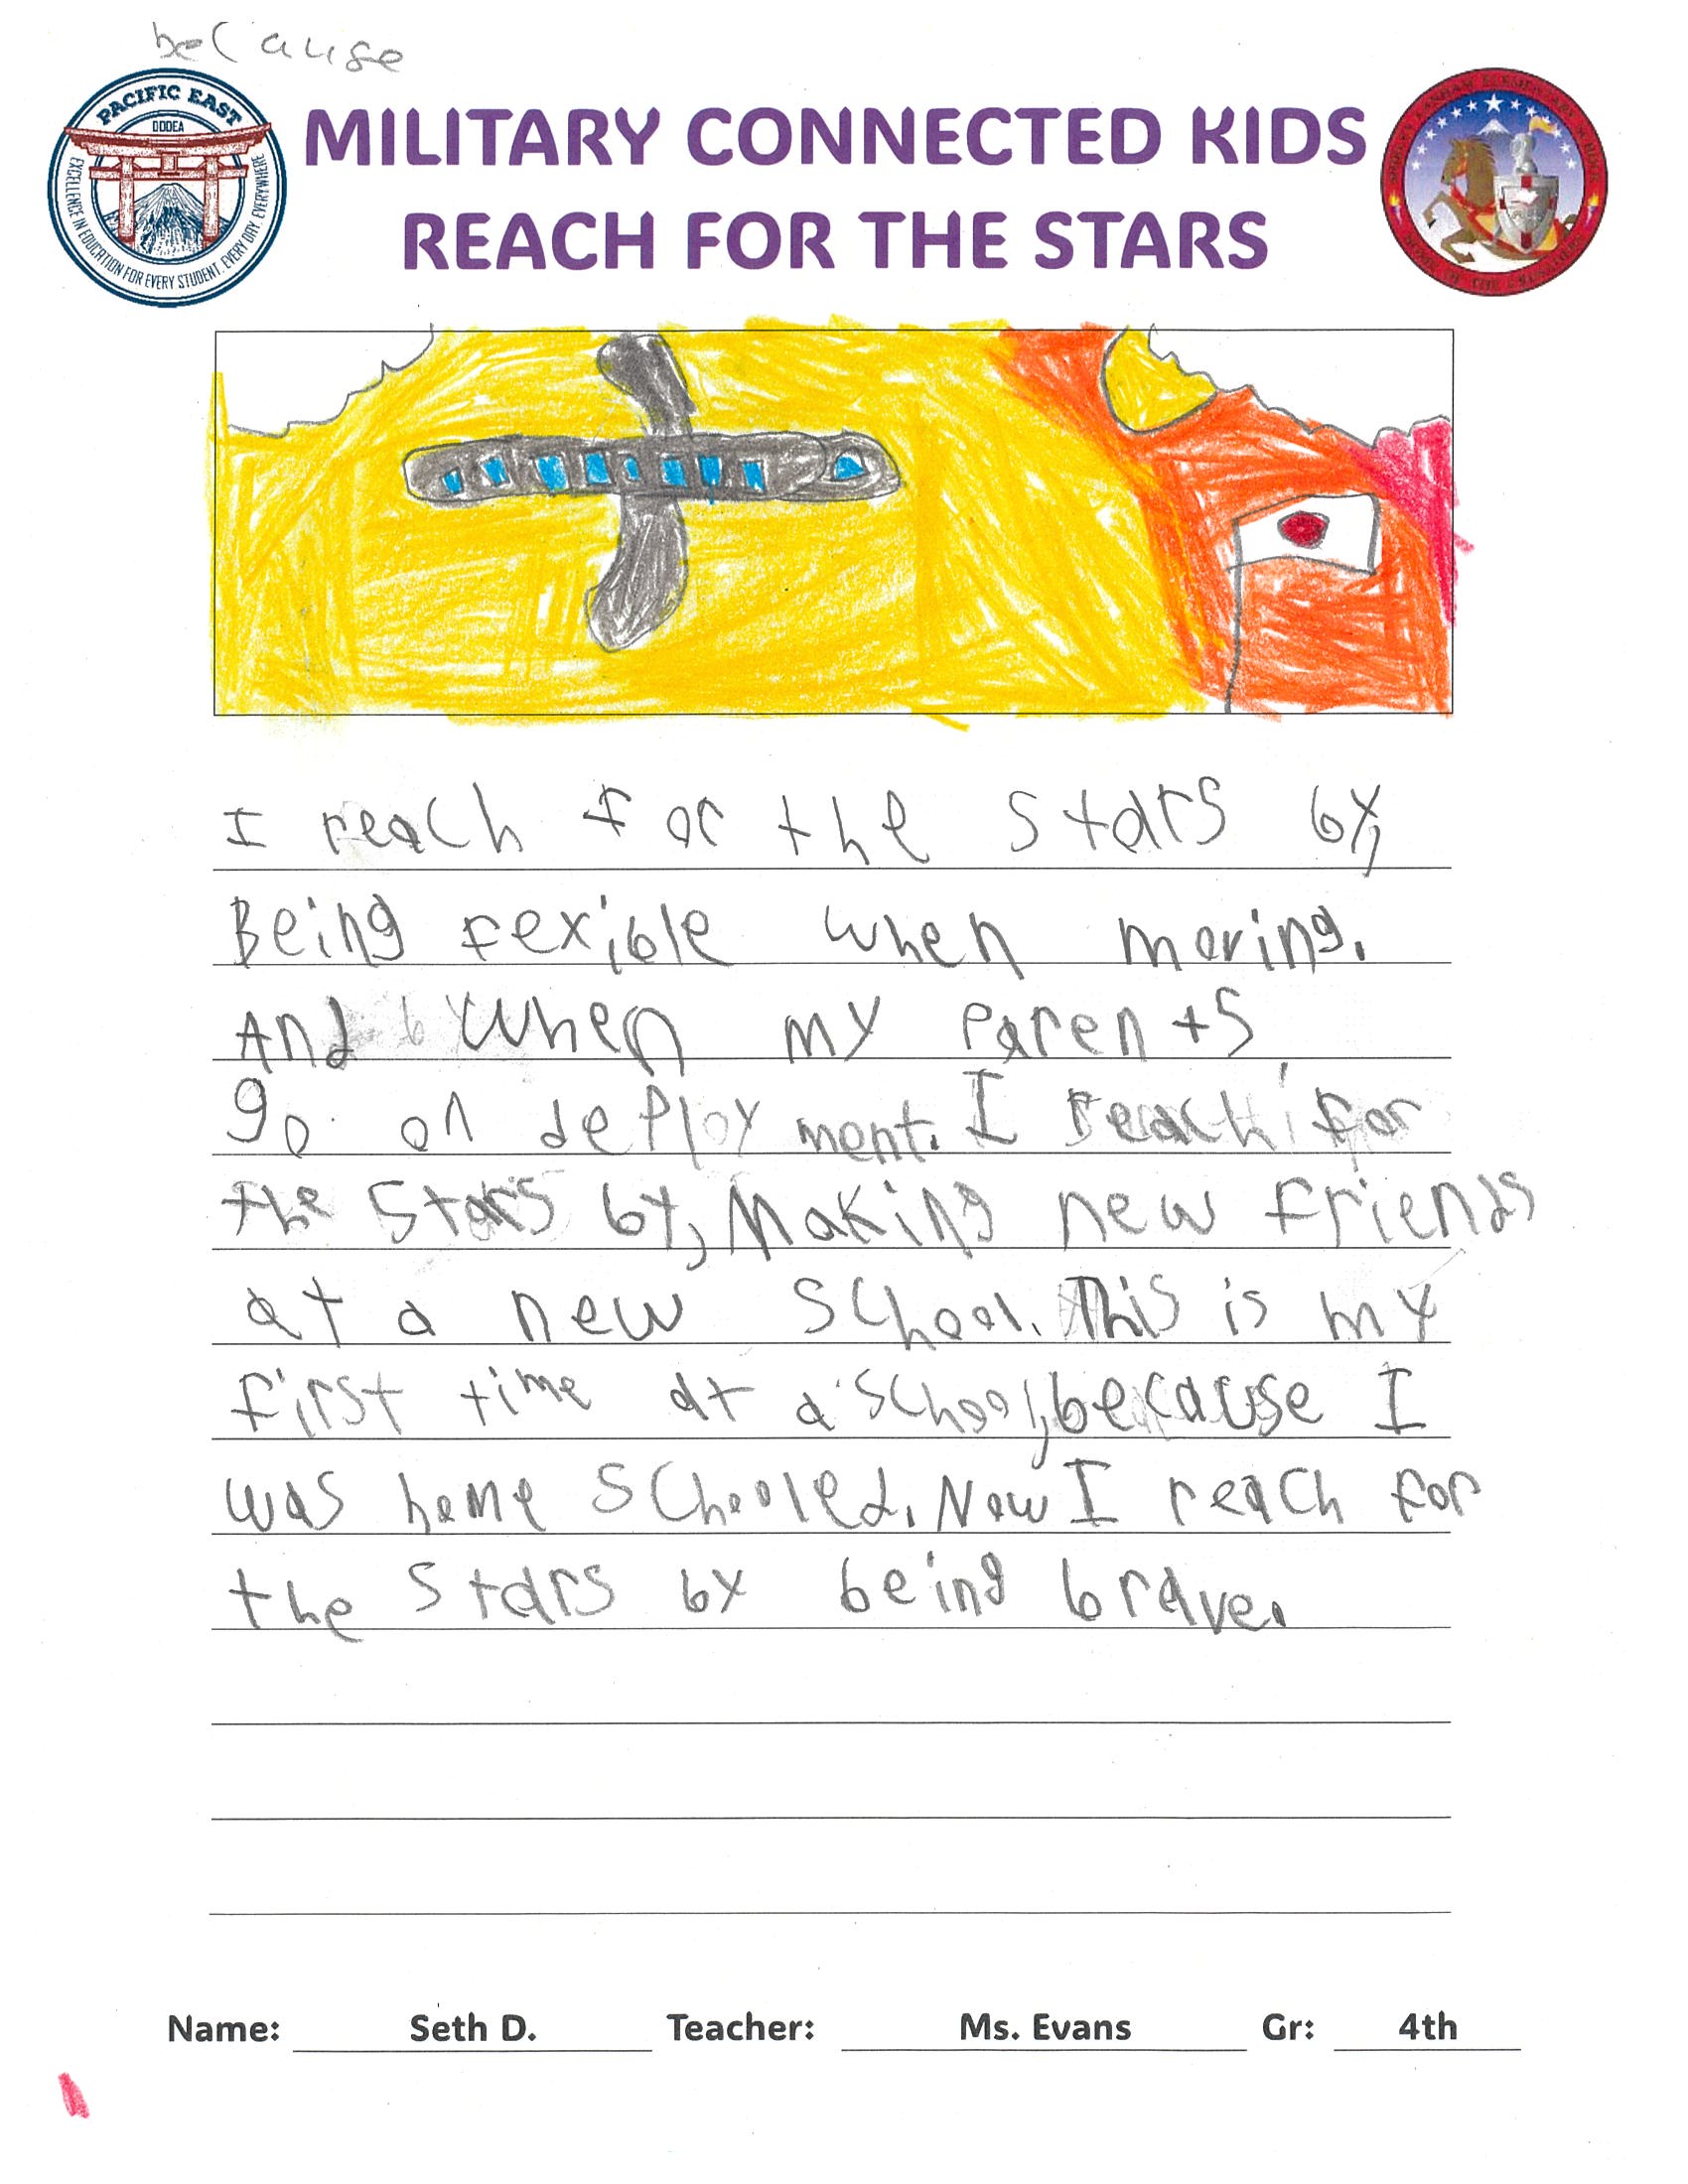 because
PACIFIC EAST
DODEA
EXCELLENCE IN EDUCATION FOR EVERY STUDENT, EVERY DAY, EVERYWHERE
MILITARY CONNECTED KIDS
REACH FOR THE STARS
I reach for the stars by,
Being fexible when moving.
And when my parents
go on deployment. I reach for
the stars by, Making new friends
at a new school. This is my
first time at a school, because I
was home schooled. Now I reach for
the stars by being brave.
Name: Seth D. Teacher: Ms. Evans Gr: 4th